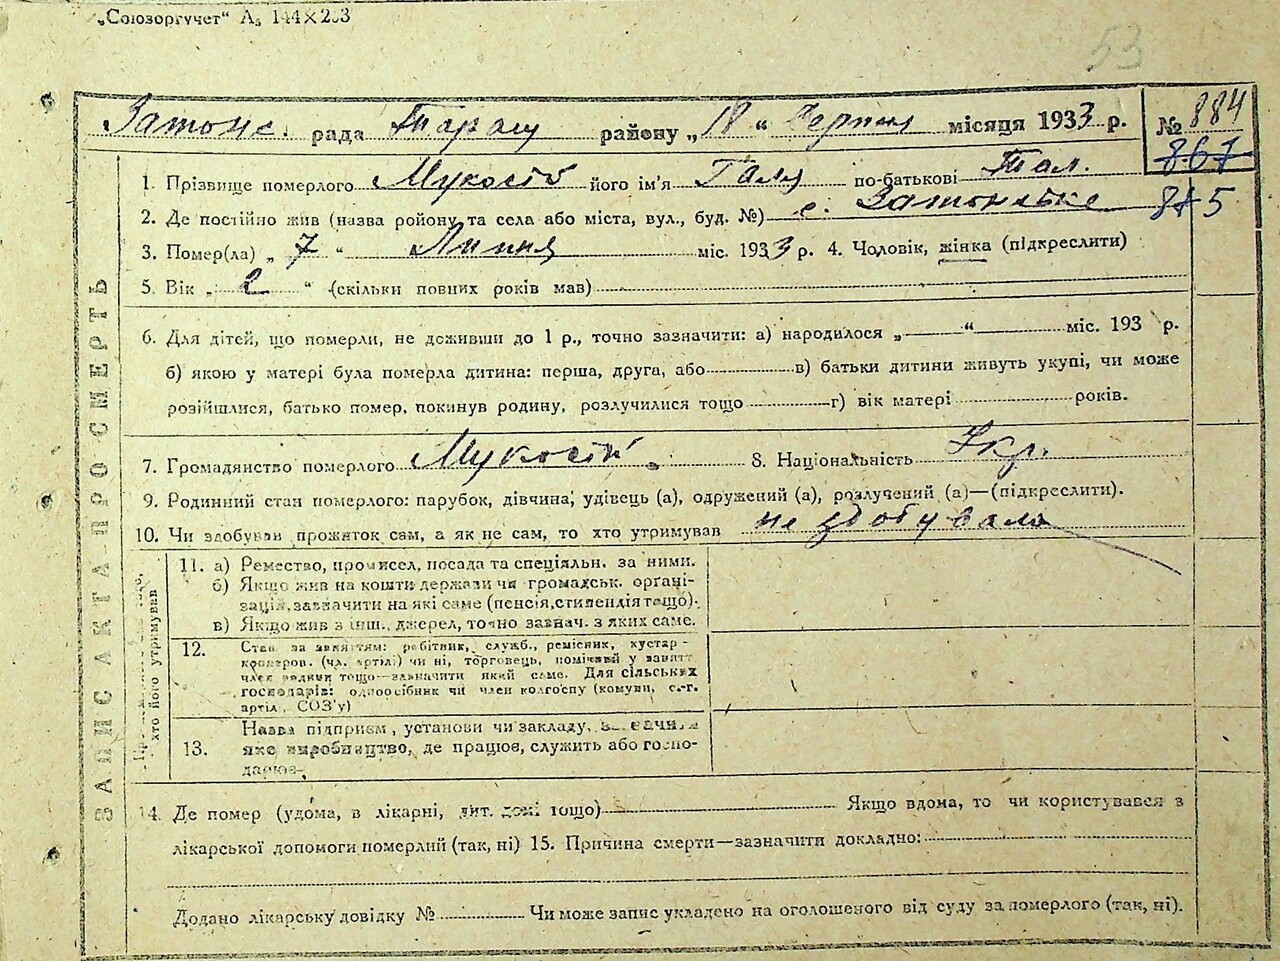 „Союзоргучет“ А₅ 144×203
53
Затонс. рада Таращ району „18“ Серпня місяця 1933 р. № 884
867
1. Прізвище померлого його ім'я Галя по-батькові
2. Де постійно жив (назва району та села або міста, вул., буд. №) с. 875
3. Помер(ла) „ 7 “ Липня міс. 1933 р. 4. Чоловік, жінка (підкреслити)
5. Вік „ 2 “ (скільки повних років мав)
6. Для дітей, що померли, не доживши до 1 р., точно зазначити: а) народилося „ “ міс. 193 р.
б) якою у матері була померла дитина: перша, друга, або в) батьки дитини живуть укупі, чи може
розійшлися, батько помер, покинув родину, розлучилися тощо г) вік матері років.
7. Громадянство померлого 8. Національність Укр.
9. Родинний стан померлого: парубок, дівчина, удівець (а), одружений (а), розлучений (а)—(підкреслити).
10. Чи здобував прожиток сам, а як не сам, то хто утримував не здобувала
11. а) Ремество, промисел, посада та спеціяльн. за ними.
б) Якщо жив на кошти держави чи громадськ. органі-
зація, зазначити на які саме (пенсія, стипендія тощо).
в) Якщо жив з інш. джерел, точно зазнач. з яких саме.
12. Стан за заняттям: робітник, служб., ремісник, кустар-
кооперов. (чл. артілі) чи ні, торговець, помічний у занятт
член родини тощо—зазначити який саме. Для сільських
господарів: одноосібник чи член колгоспу (комуни, с.-г.
артіл, СОЗ'у)
Назва підприєм, установи чи закладу,
13. яке виробництво, де працює, служить або госпо-
дарює.
хто його утримував
ЗАПИС АКТА ПРО СМЕРТЬ
14. Де помер (удома, в лікарні, дит. домі тощо) Якщо вдома, то чи користувався з
лікарської допомоги померлий (так, ні) 15. Причина смерти—зазначити докладно:
Додано лікарську довідку № Чи може запис укладено на оголошеного від суду за померлого (так, ні).